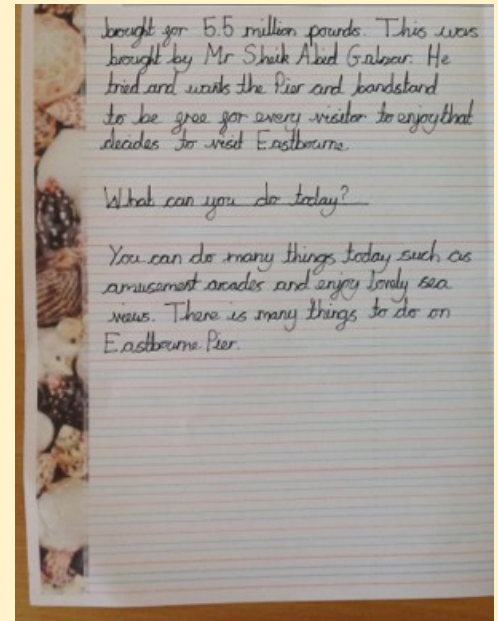 brought for 5.5 million pounds. This was
brought by Mr Sheik Abid Gulzar. He
tried and wants the Pier and bandstand
to be free for every visitor to enjoy that
decides to visit Eastbourne.
What can you do today?
You can do many things today such as
amusement arcades and enjoy lovely sea
views. There is many things to do on
Eastbourne Pier.